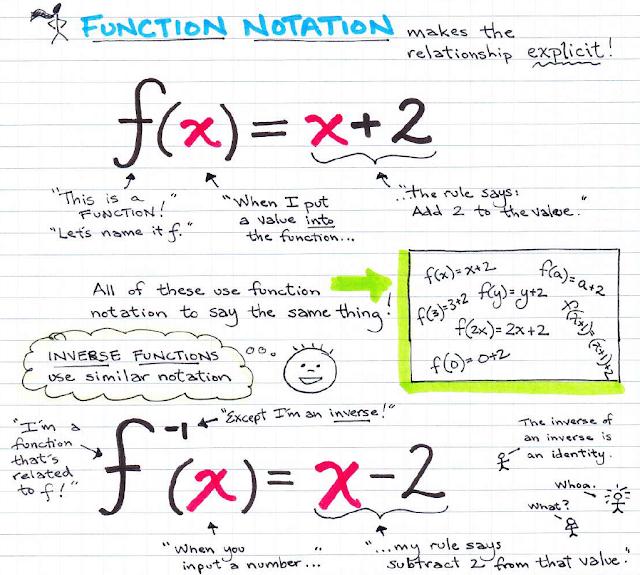 FUNCTION NOTATION makes the
relationship explicit!
f(x) = x+2
"This is a
FUNCTION!"
"Let's name it f."
"When I put
a value into
the function...
"...the rule says:
Add 2 to the value."
All of these use function
notation to say the same thing!
f(x)=x+2
f(a)=a+2
f(3)=3+2
f(y)=y+2
f(2x)=2x+2
f(0)=0+2
INVERSE FUNCTIONS
use similar notation
"I'm a
function
that's
related
to f!"
"Except I'm an inverse!"
f⁻¹(x) = x-2
"When you
input a number..."
"...my rule says
subtract 2 from that value."
The inverse of
an inverse is
an identity.
Whoa.
What?